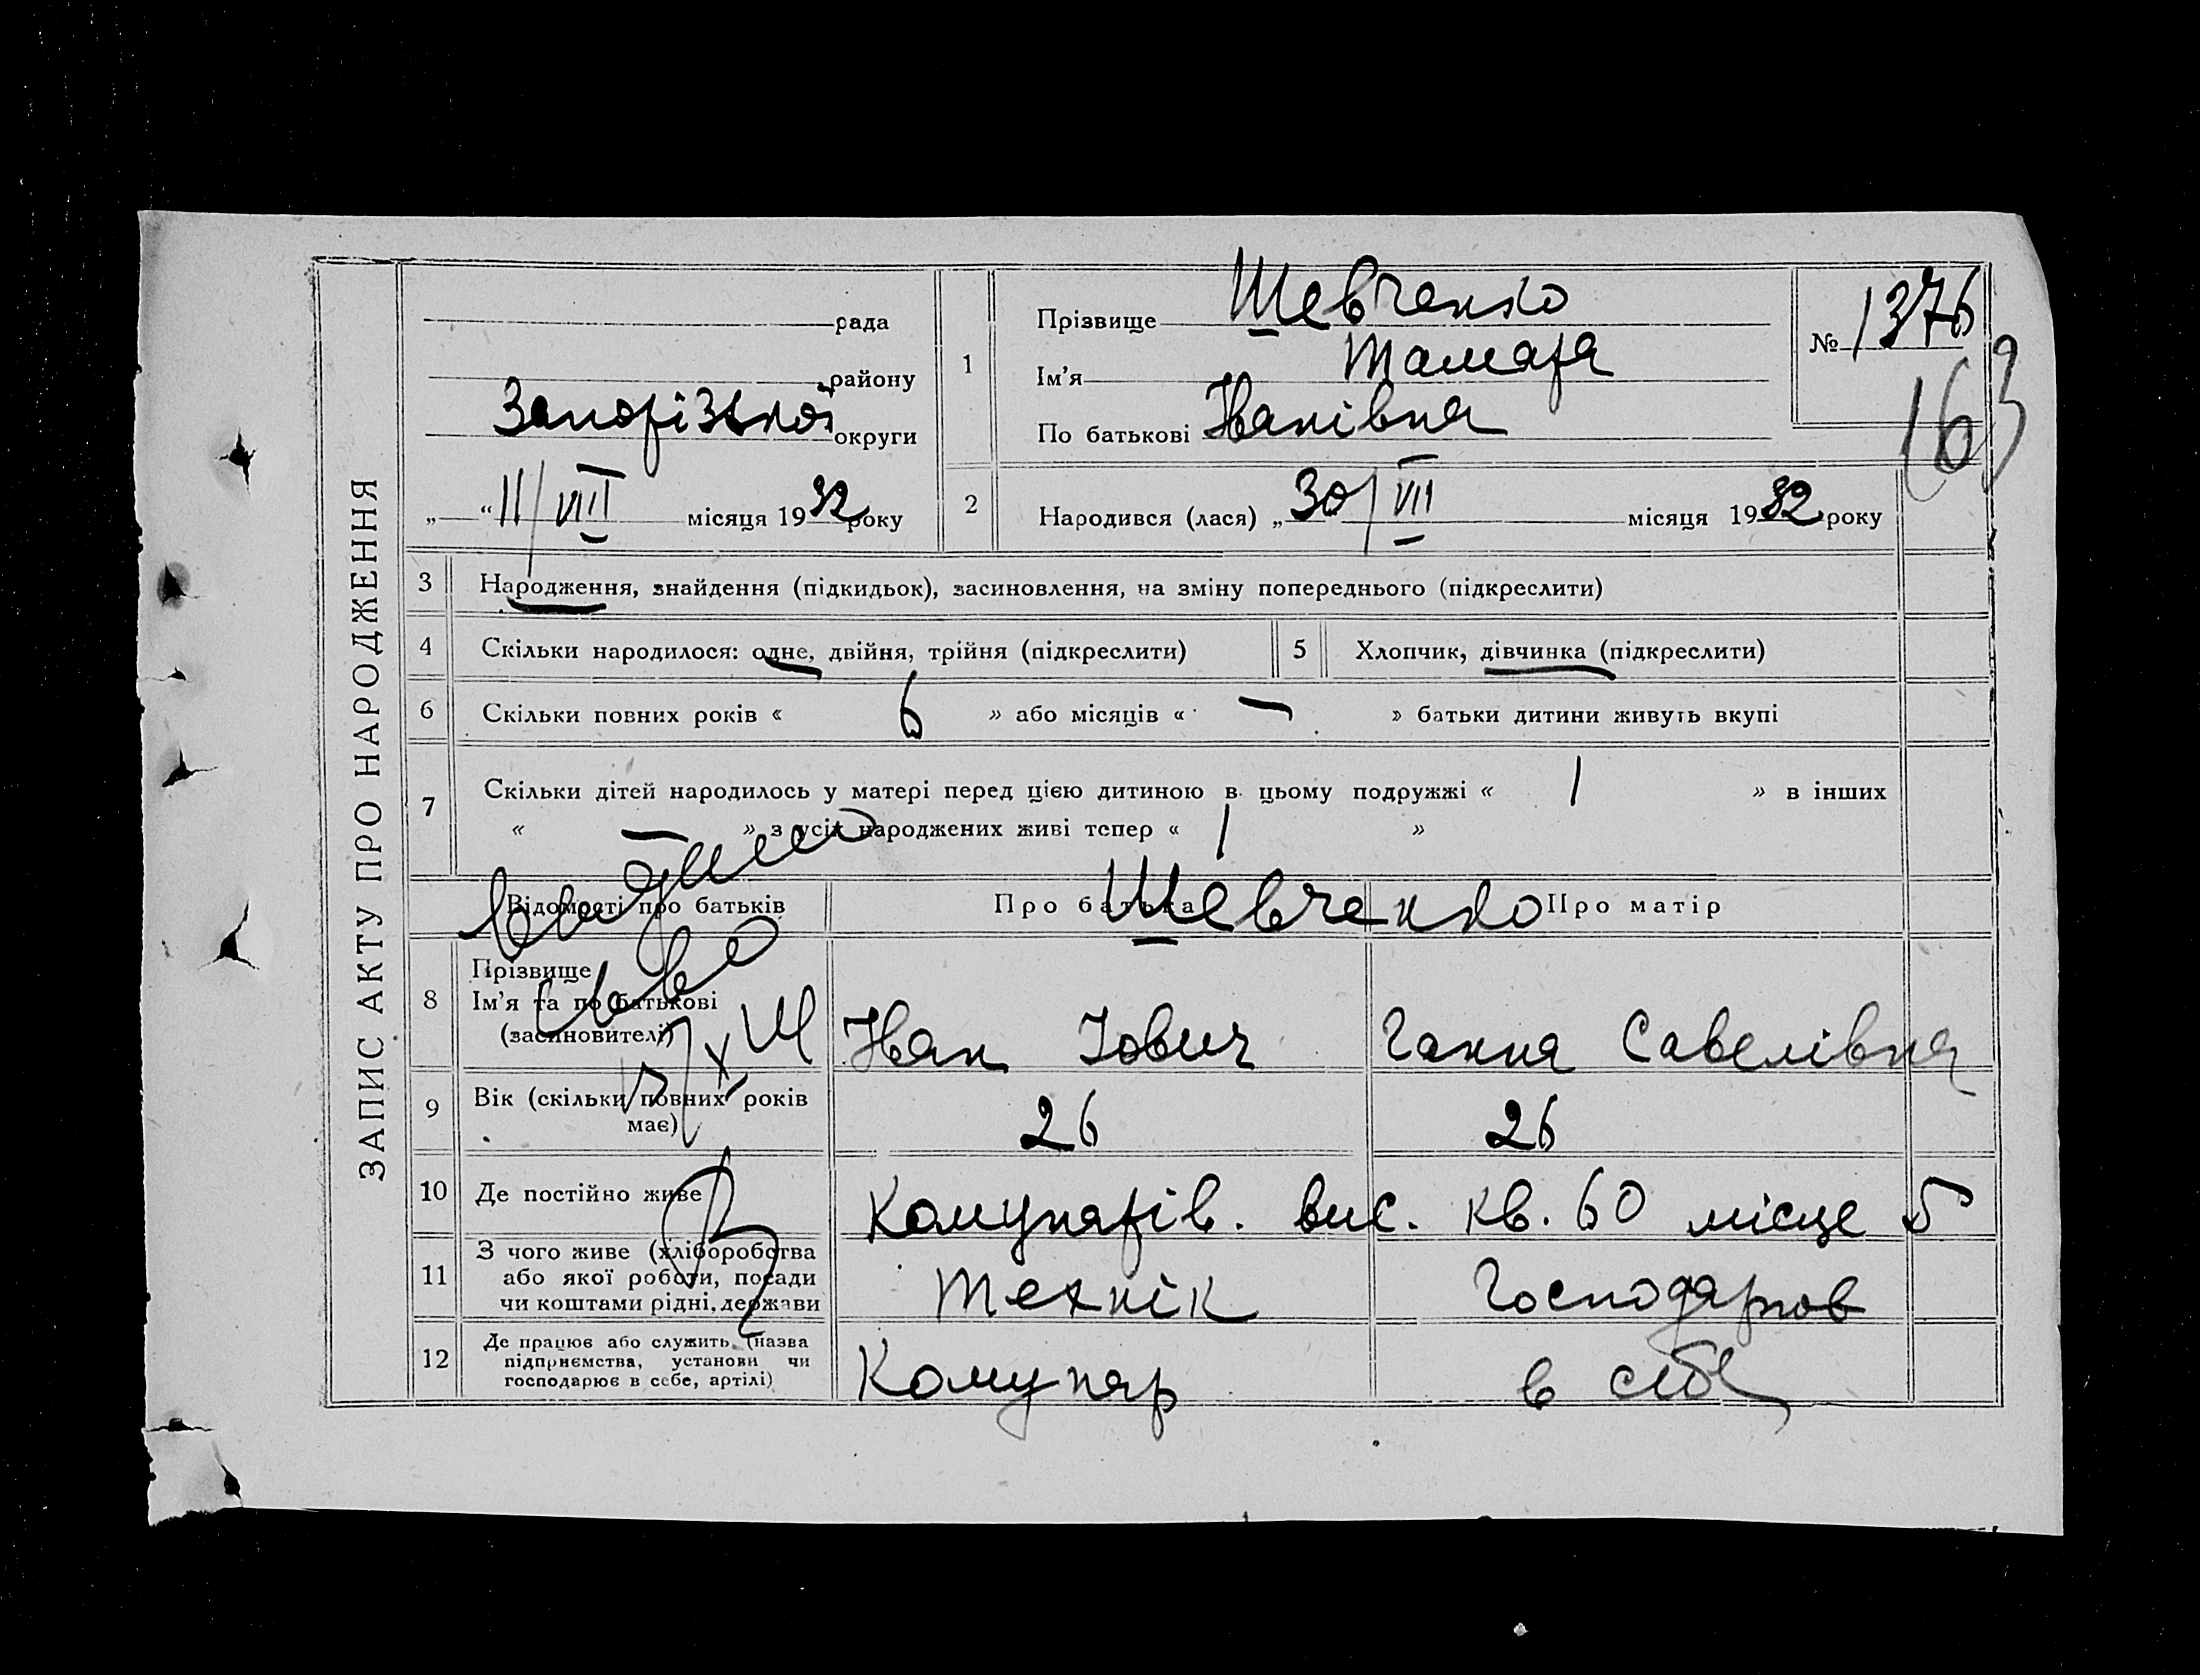 ЗАПИС АКТУ ПРО НАРОДЖЕННЯ
рада
району
Запорізької округи
„ “ 11/VIII місяця 1932 року
1
Прізвище Шевченко
Ім'я Тамара
По батькові Іванівна
№ 1376
163
2 Народився (лася) „30/VII місяця 1932 року
3 Народження, знайдення (підкидьок), засиновлення, на зміну попереднього (підкреслити)
4 Скільки народилося: одне, двійня, трійня (підкреслити)
5 Хлопчик, дівчинка (підкреслити)
6 Скільки повних років « 6 » або місяців « — » батьки дитини живуть вкупі
7 Скільки дітей народилось у матері перед цією дитиною в цьому подружжі « 1 » в інших
« — » з усіх народжених живі тепер « 1 »
Відомості про батьків Про батька Про матір
Шевченко
8 Прізвище
Ім'я та по батькові
(засиновителі)
Іван Іович Ганна Савелівна
9 Вік (скільки повних років
має)
26 26
10 Де постійно живе Комунарів. вис. кв. 60 місце 5
11 З чого живе (хліборобства
або якої роботи, посади
чи коштами рідні, держави
Технік Господарюв
12 Де працює або служить (назва
підприємства, установи чи
господарює в себе, артілі)
Комунар в себе